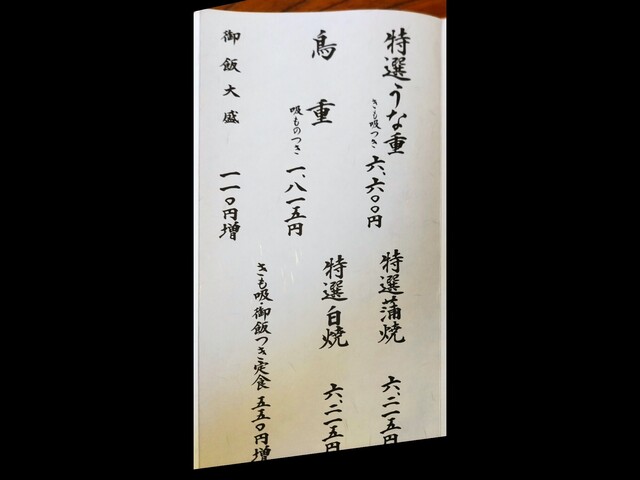 特選うな重
きも吸つき
六、六〇〇円
鳥重
吸ものつき
一、八一五円
御飯大盛
一一〇円増
特選蒲焼
六、二一五円
特選白焼
六、二一五円
きも吸・御飯つき定食 五五〇円増